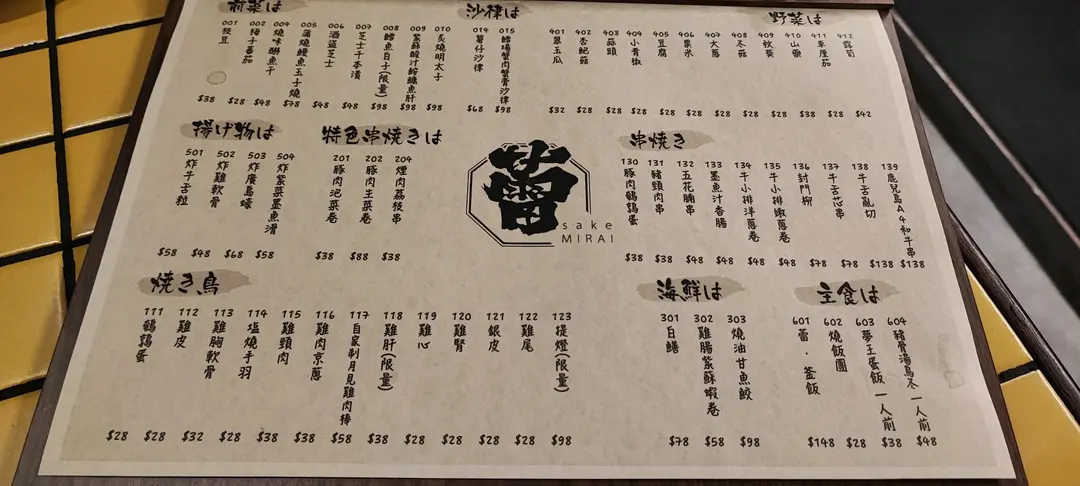 前菜は
001 枝豆 $38
002 柚子番茄 $28
004 燒味醂魚干 $48
005 蒲燒鰻魚玉子燒 $78
006 酒盜芝士 $48
007 芝士千本漬 $48
008 鱈魚白子(限量) $98
009 紫蘇酸汁鮟鱇魚肝 $98
010 炙燒明太子 $98
沙律は
014 薯仔沙律 $68
015 鱈場蟹肉蟹膏沙律 $98
野菜は
401 翠玉瓜 $32
402 杏鮑菇 $28
403 蒜頭 $28
404 小青椒 $28
405 豆腐 $28
406 粟米 $28
407 大蔥 $28
408 冬菇 $28
409 秋葵 $28
410 山藥 $38
411 車厘茄 $28
412 露筍 $42
揚げ物は
501 炸牛舌粒 $58
502 炸雞軟骨 $48
503 炸廣島蠔 $68
504 炸紫菜墨魚滑 $58
特色串焼きは
201 豚肉泡菜卷 $38
202 豚肉生菜卷 $88
204 煙肉荔枝串 $38
蕾
sake
MIRAI
串焼き
130 豚肉鵪鶉蛋 $38
131 豬頸肉串 $38
132 五花腩串 $48
133 墨魚汁香腸 $48
134 牛小排洋蔥卷 $48
135 牛小排椒蔥卷 $48
136 封門柳 $78
137 牛舌芯串 $78
138 牛舌亂切 $138
139 鹿兒島A4和牛串 $138
焼き鳥
111 鵪鶉蛋 $28
112 雞皮 $28
113 雞胸軟骨 $32
114 塩燒手羽 $28
115 雞頸肉 $38
116 雞肉京蔥 $38
117 自家制月見雞肉棒 $58
118 雞肝(限量) $38
119 雞心 $28
120 雞腎 $28
121 銀皮 $28
122 雞尾 $28
123 提燈(限量) $98
海鮮は
301 白鱔 $78
302 雞腸紫蘇蝦卷 $58
303 燒油甘魚鮫 $98
主食は
601 蕾・釜飯 $148
602 燒飯團 $28
603 夢王蛋飯 一人前 $38
604 豬骨湯烏冬 一人前 $48